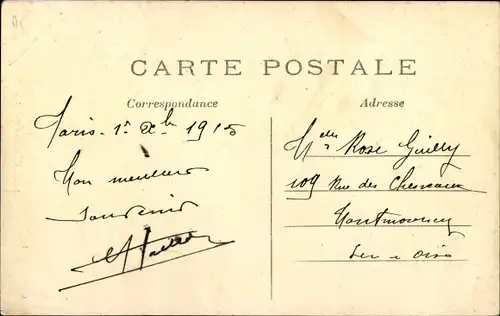 CARTE POSTALE
Correspondance
Adresse
Paris - 1er Xb 1915
Mon meilleur
souvenir
Melle Rose Guilly
109 Rue des Chesneaux
Montmorency
Sei e Oise